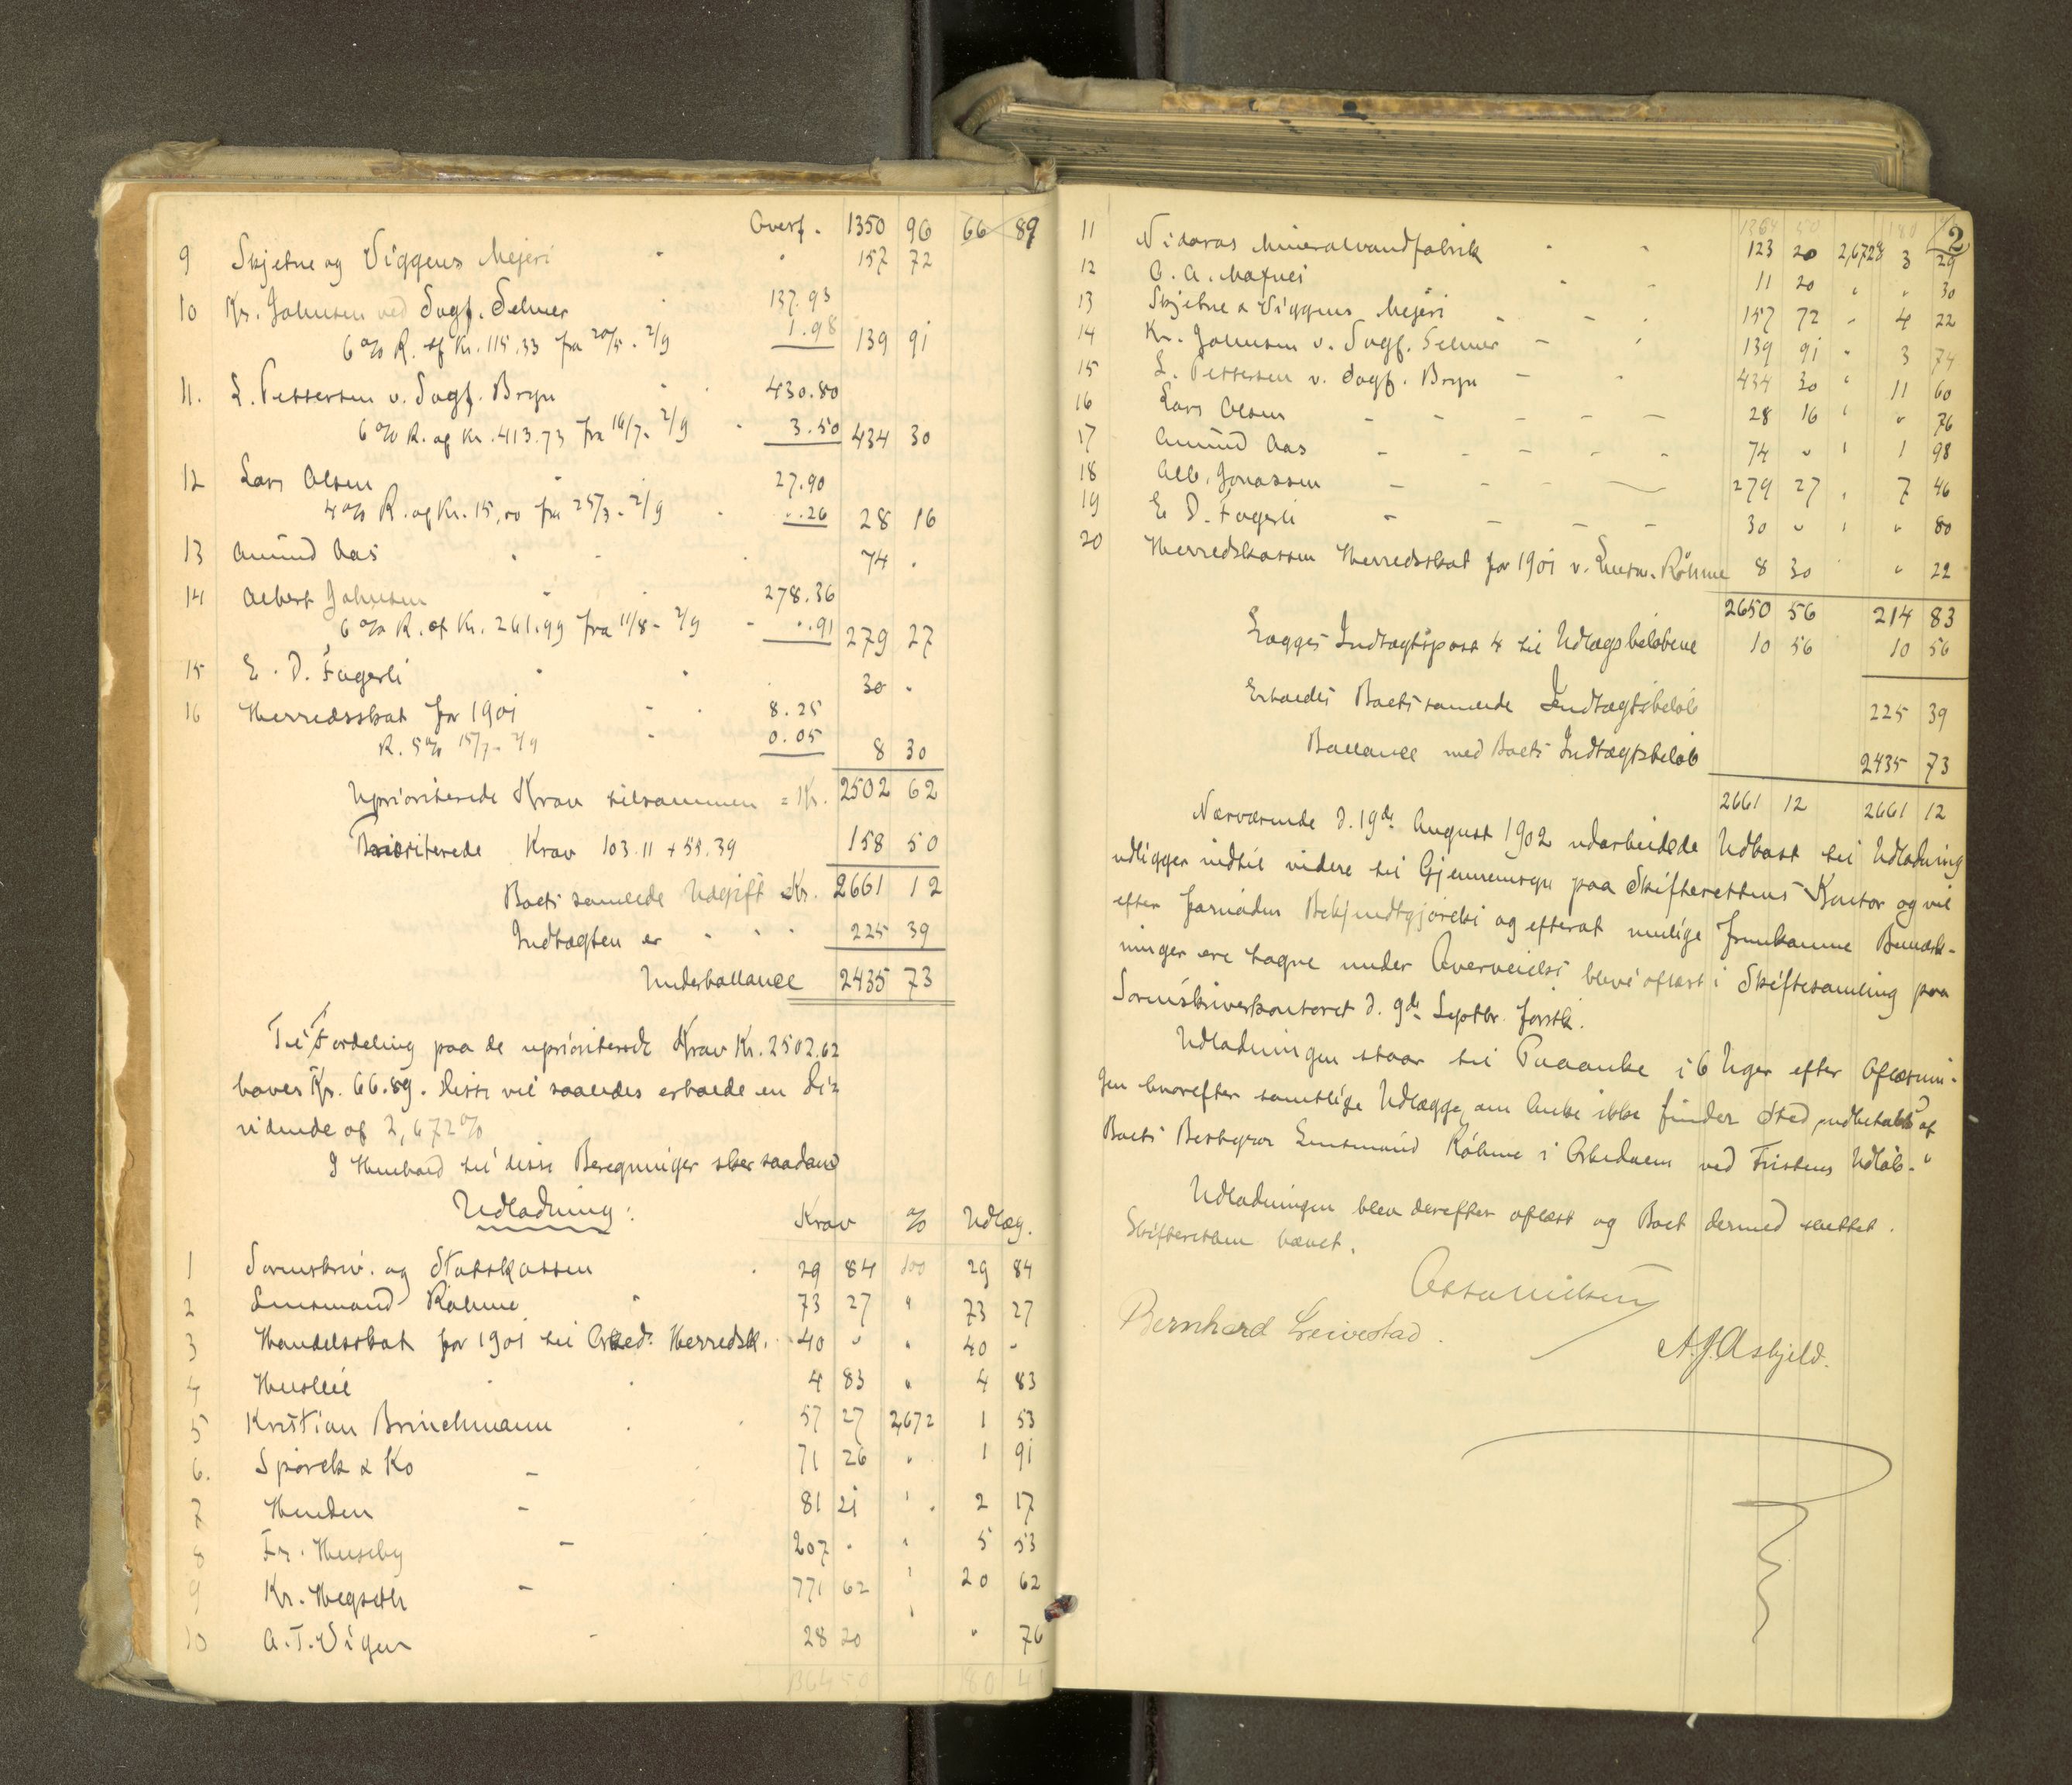 Overf. 1350 96 66 89
9 Skjetne og Viggens Mejeri " " 157 72
10 Kr. Johnsen ved Sagf. Selmer " 137.93
6 % R. af Kr. 115.33 fra 20/5 - 2/9 1.98 139 91
11. L. Pettersen v. Sagf. Bryn " 430.80
6 % R. af Kr. 413.73 fra 16/7 - 2/9 " 3.50 434 30
12 Lars Olsen " 27.90
4 % R. af Kr. 15,00 fra 25/3 - 2/9 " ".26 28 16
13 Amund Aas " " " 74 "
14 Albert Johnsen " " 278.36
6 % R. af Kr. 261.99 fra 11/8 - 2/9 " ".91 279 27
15 E. D. Fagerli " " 30 "
16 Herredsskat for 1901 " " 8.25
R. 5 % 15/7 - 2/9 " 0.05 8 30
Uprioriterede Krav tilsammen = Kr. 2502 62
Prioriterede Krav 103.11 + 55.39 158 50
Boets samlede Udgift Kr. 2661 12
Indtægten er " " " 225 39
Underballance 2435 73
Til Fordeling paa de uprioriterede Krav Kr. 2502.62
haves Kr. 66.89. Disse vil saaledes erholde en Di=
vidende af 2,672 %
I Henhold til disse Beregninger sker saadan
Udlodning:
Krav % Udlæg.
1 Sorenskriv. og Statskassen " 29 84 100 29 84
2 Lensmand Røhme " 73 27 " 73 27
3 Handelsskat for 1901 til Orked. Herredsk. " 40 " " 40 "
4 Husleie " " 4 83 " 4 83
5 Kristian Brinchmann " " 57 27 2,672 1 53
6. Spørck & Ko - 71 26 " 1 91
7 Henden - 81 21 " 2 17
8 Fr. Huseby - 207 " " 5 53
9 Kr. Hegseth - 771 62 " 20 62
10 A. T. Vigen - 28 20 " " 76
1364 50 180 41
2
1364 50 180 41
11 Nidaros Mineralvandfabrik " " 123 20 2,6728 3 29
12 O. A. Moxnes " " 11 20 " " 30
13 Skjetne & Viggens Mejeri " - " 157 72 " 4 22
14 Kr. Johnsen v. Sagf. Selmer - " 139 91 " 3 74
15 L. Pettersen v. Sagf. Bryn - " 434 30 " 11 60
16 Lars Olsen - - - - - 28 16 " " 76
17 Amund Aas - - - - - 74 " " 1 98
18 Alb. Jonassen - - - - 279 27 " 7 46
19 E. D. Fagerli - - - - 30 " " " 80
20 Herredskassen Herredsskat for 1901 v. Lensm. Røhme 8 30 " 22
2650 56 214 83
Lægges Indtægtspost 4 til Udlægsbeløbene 10 56 10 56
Erholdes Boets samlede Indtægtsbeløb 225 39
Ballance med Boets Indtægtsbeløb 2435 73
2661 12 2661 12
Nærværende d. 19de August 1902 udarbeidede Udkast til Udlodning
udligger indtil videre til Gjennemsyn paa Skifterettens Kontor og vil
efter foregaaende Bekjendtgjørelse og efterat mulige fremkomne Bemærk-
ninger ere tagne under Overveielse blive oplæst i Skiftesamling paa
Sorenskriverkontoret d. 9de Septbr. førstk.
Udlodningen staar til Paaanke i 6 Uger efter Oplæsnin-
gen hvorefter samtlige Udlægge, om Anke ikke finder Sted, udbetales af
Boets Bestyrer Lensmand Røhme i Orkedalen ved Fristens Udløb."
Udlodningen blev derefter oplæst og Boet dermed sluttet.
Skifteretten hævet.
Bernhard Leivestad.
A. J. Asbjeld.